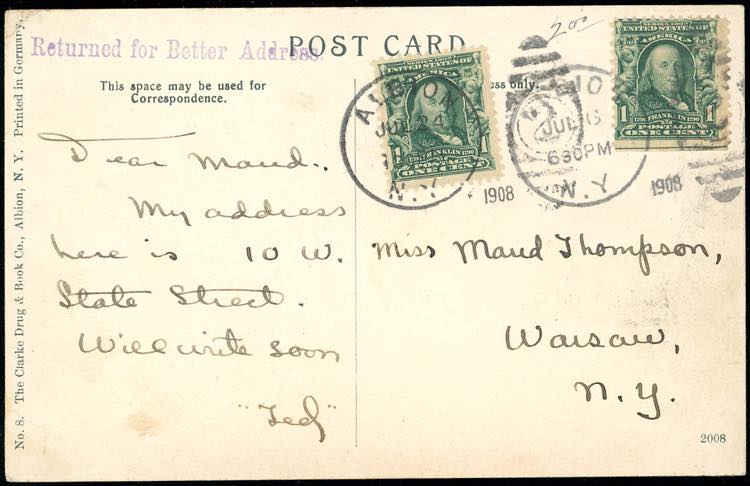 Returned for Better Address.
POST CARD
This space may be used for
Correspondence.
ss only.
2.00
SERIES 1902
UNITED STATES OF
AMERICA
1706 FRANKLIN 1790
1 1
POSTAGE
ONE CENT
SERIES 1902
UNITED STATES OF
AMERICA
1706 FRANKLIN 1790
1 1
POSTAGE
ONE CENT
ALBION
JUL 24
N.Y.
1908
BION
JUL 6
630PM
N.Y
1908
Dear Maud.
My address
here is 10 W.
State Street.
Will write soon
"Ted"
Miss Maud Thompson,
Warsaw,
N.Y.
2008
No. 8. The Clarke Drug & Book Co., Albion, N. Y. Printed in Germany.